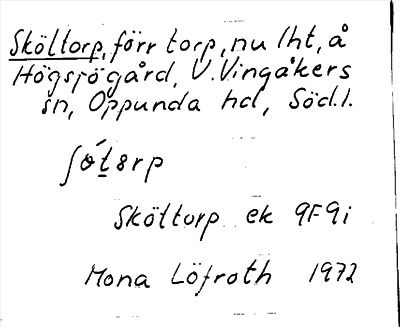 Sköltorp, förr torp, nu lht, å
Högsjögård, V. Vingåkers
sn, Oppunda hd, Söd.l.
Sköltorp ek 9F9i
Mona Löfroth 1972